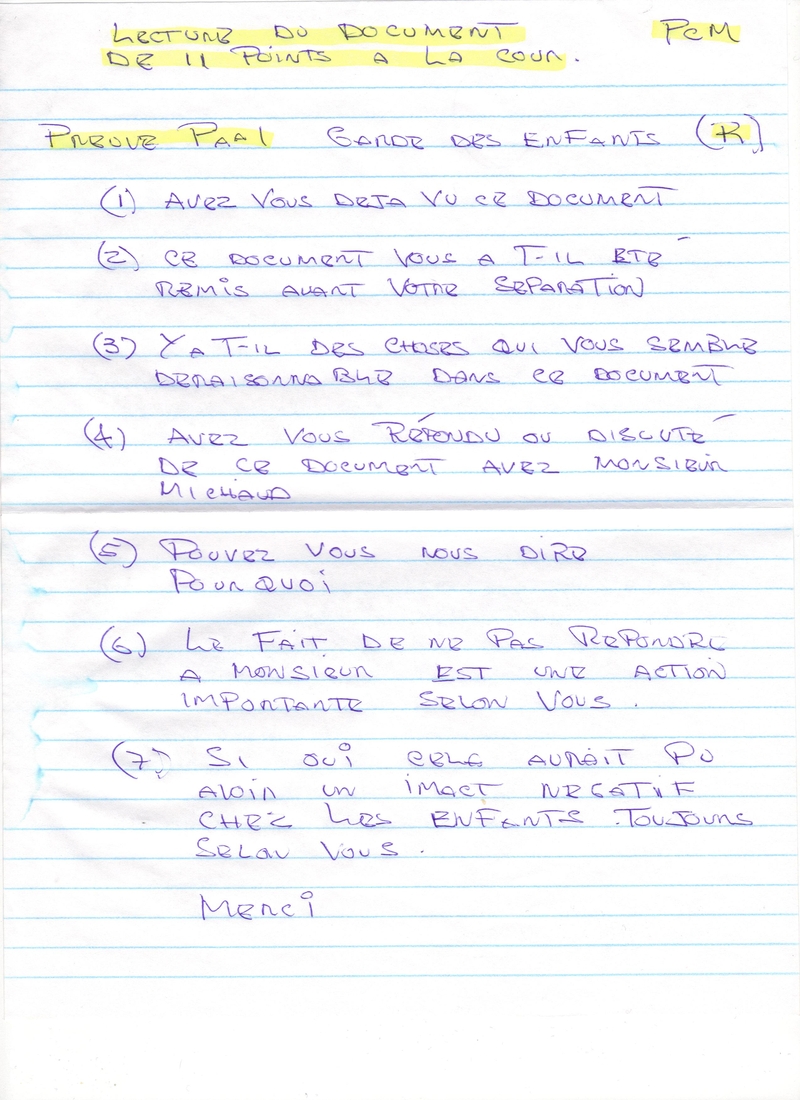 LECTURE DU DOCUMENT PCM
DE 11 POINTS A LA COUR.
PREUVE PAA1 GARDE DES ENFANTS (R)
(1) AVEZ VOUS DEJA VU CE DOCUMENT
(2) CE DOCUMENT VOUS A T-IL ETÉ
REMIS AVANT VOTRE SEPARATION
(3) Y A T-IL DES CHOSES QUI VOUS SEMBLE
DERAISONNABLE DANS CE DOCUMENT
(4) AVEZ VOUS RÉPONDU OU DISCUTÉ
DE CE DOCUMENT AVEZ MONSIEUR
MICHAUD
(5) POUVEZ VOUS NOUS DIRE
POURQUOI
(6) LE FAIT DE NE PAS REPONDRE
A MONSIEUR EST UNE ACTION
IMPORTANTE SELON VOUS.
(7) SI OUI CELA AURAIT PU
AVOIR UN IMACT NEGATIF
CHEZ LES ENFANTS TOUJOURS
SELON VOUS.
MERCI